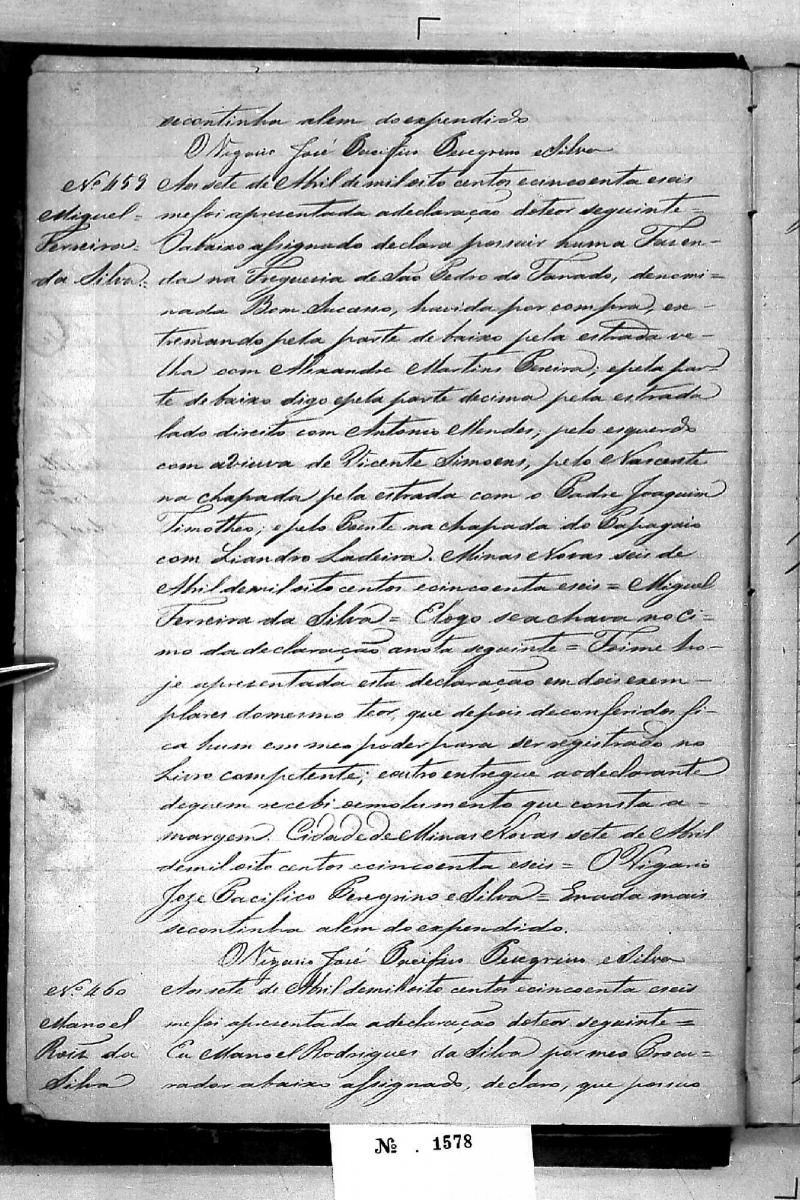 secontinha alem doexpendido
O Vigario José Pacifico Peregrino eSilva
Nº 459 Aos sete de Abril demil oito centos ecincoenta eseis
Miguel = me foi apresentada adeclaração doteor seguinte =
Ferreira O abaixo assignado declara possuir huma Fasen-
da Silva: da na Freguesia de São Pedro do Fanado, denomi=
nada Bom Sucesso, havida por compra, ex-
tremando pela parte debaixo pela estrada ve-
lha com Alexandre Martins Pereira; epela par-
te debaixo digo epela parte decima pela estrada
lado direito com Antonio Mendes; pelo esquerdo
com aviuva de Vicente Simoens, pelo Nascente
na chapada pela estrada com o Padre Joaquim
Timotheo; epelo Poente na chapada do Papagaio
com Liandro Ladeira. Minas Novas seis de
Abril demil oito centos ecincoenta eseis = Miguel
Ferreira da Silva = Elogo seachava no ci-
mo dadeclaração anota seguinte = Foime ho-
je apresentada esta declaração em dois exem-
plares domesmo teor, que depois deconferidos fi-
ca hum em meo poder para ser registrado no
Livro competente; eoutro entregue aodeclarante
dequem recebi oemolumento que consta a-
margem. Cidade de Minas Novas sete de Abril
demil oito centos ecincoenta eseis = O Vigario
Joze Pacifico Peregrino eSilva = Enada mais
secontinha alem do expendido.
O Vigario José Pacifico Peregrino eSilva
Nº 460 Aos sete de Abril demil oito centos ecincoenta eseis
Manoel me foi apresentada adeclaração doteor seguinte =
Roiz da Eu Manoel Rodrigues da Silva por meo Procu-
Silva rador abaixo assignado, declaro, que possuo
Nº . 1578